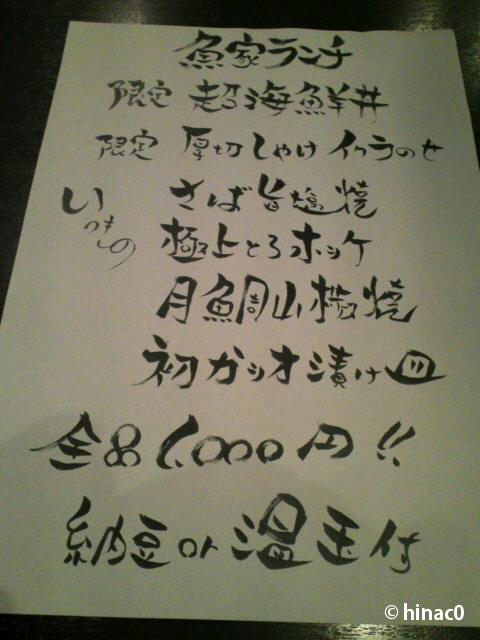 魚家ランチ
限定 超海鮮丼
限定 厚切しゃけ イクラのせ
いつもの
さば旨塩焼
極上とろホッケ
月鯛山椒焼
初ガツオ漬け皿
全品1,000円!!
納豆or温玉付
© hinac0